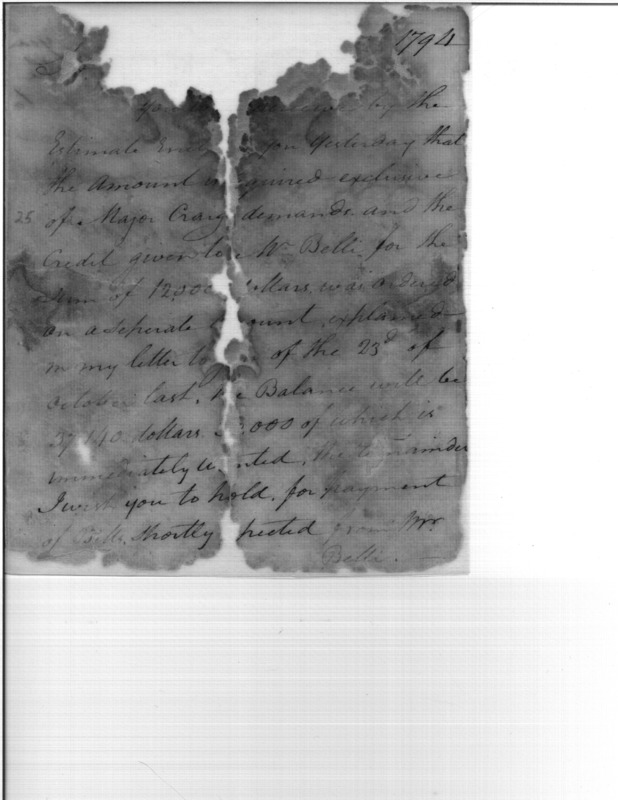 1794
by the
Estimate you Yesterday that
the Amount quired exclusive
25 of Major Craig demands and the
Credit given to Mr Belli for the
Sum of 12,000 ollars was
on a Seperate ount, explained
in my letter to of the 23d of
October last, e Balance will be
37,140 dollars ,000 of which is
immediately w nted, the remainder
I wish you to hold, for payment
of Bills Shortly pected from Mr.
Belli. —